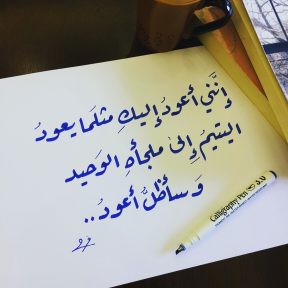 إنَّني أعودُ إليكِ مثلَما يعودُ
اليتيمُ إلىٰ ملجأهِ الوَحيد
وَسأظلُّ أعودُ..
Calligraphy Pen 3.0